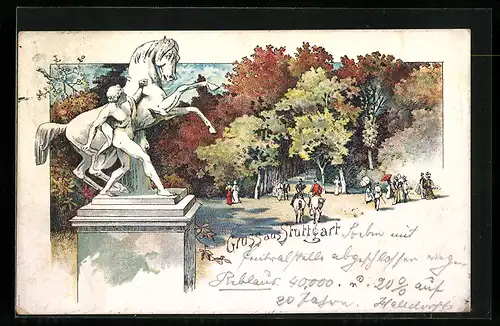 Gruss aus Stuttgart
Soeben mit
Centralstelle abgeschlossen wegen
Reblaus. 40,000. 20% auf
20 Jahre.